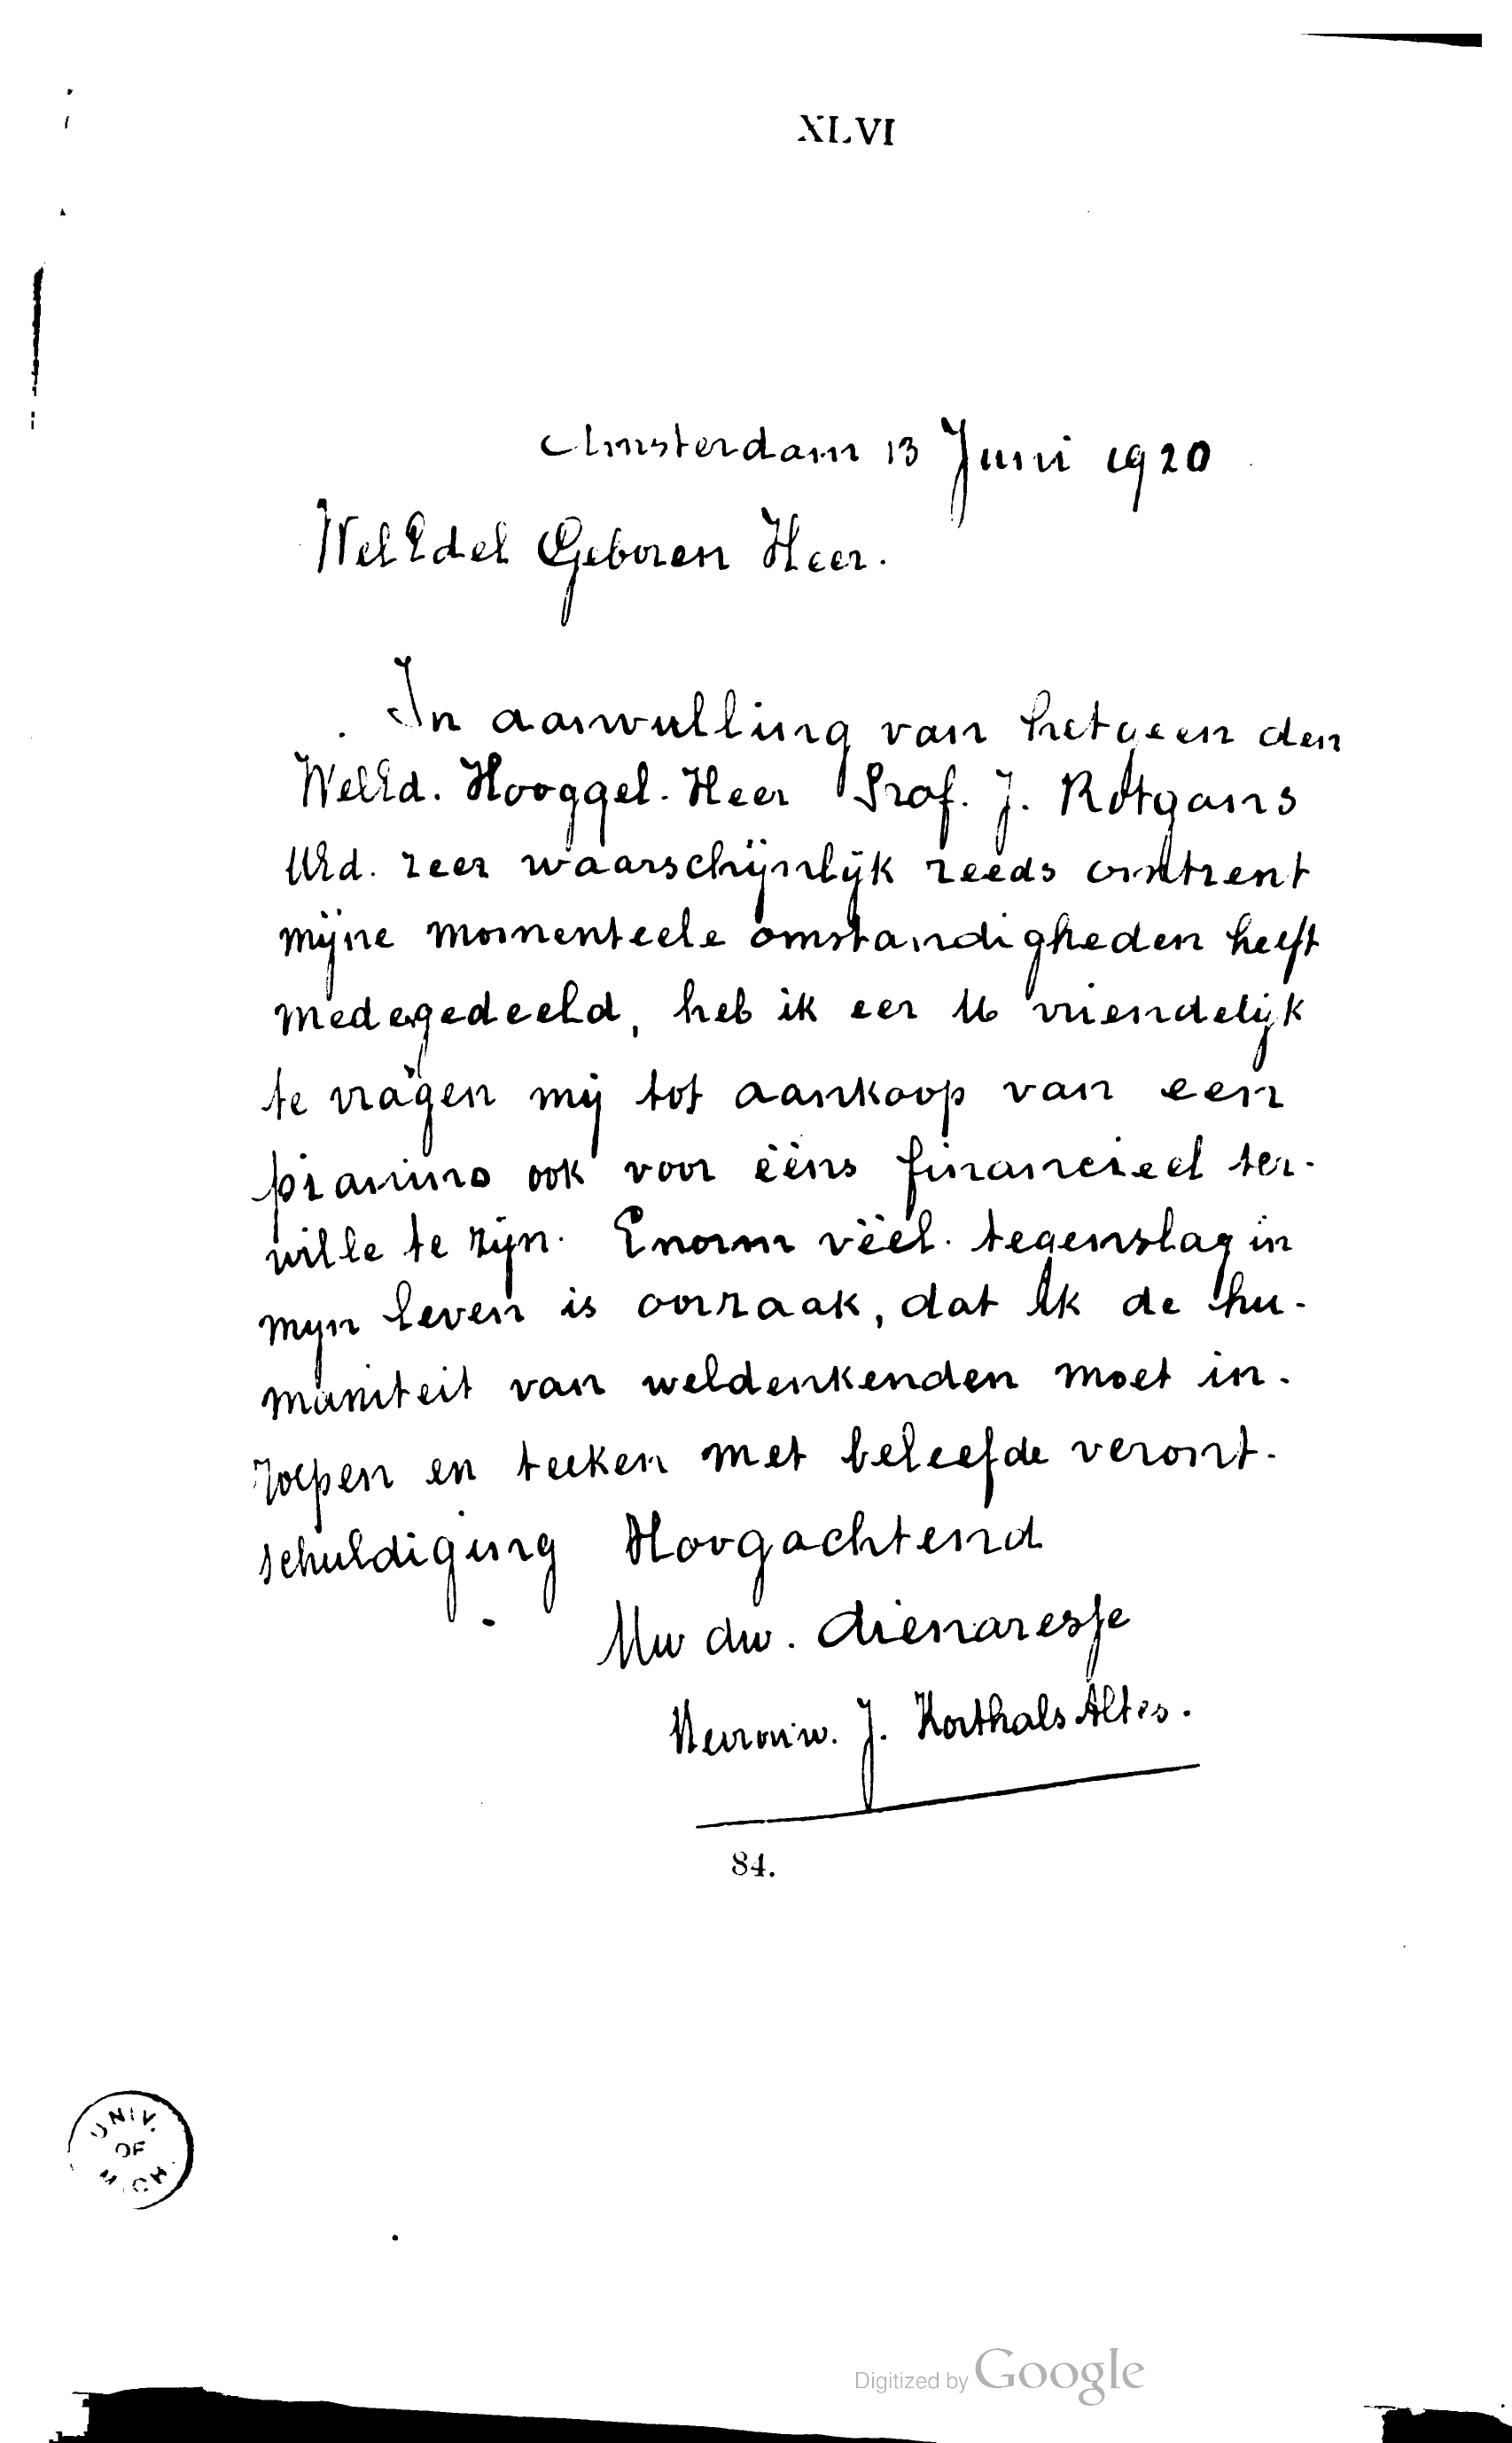 XLVI
Amsterdam 13 Juni 1920
WelEdel Geboren Heer.
In aanvulling van hetgeen den
WelEd. Hooggel. Heer Prof. J. Rotgans
UEd. zeer waarschijnlijk reeds omtrent
mijne momenteele omstandigheden heeft
medegedeeld, heb ik eer U vriendelijk
te vragen mij tot aankoop van een
pianino ook voor ééns financieel ter-
wille te zijn. Enorm véél tegenslag in
mijn leven is oorzaak, dat Ik de hu-
maniteit van weldenkenden moet in-
roepen en teeken met beleefde veront-
schuldiging Hoogachtend
Uw dw. dienaresse
Mevrouw. J. Korthals Altes.
84.
UNIV.
OF
MICH
Digitized by Google